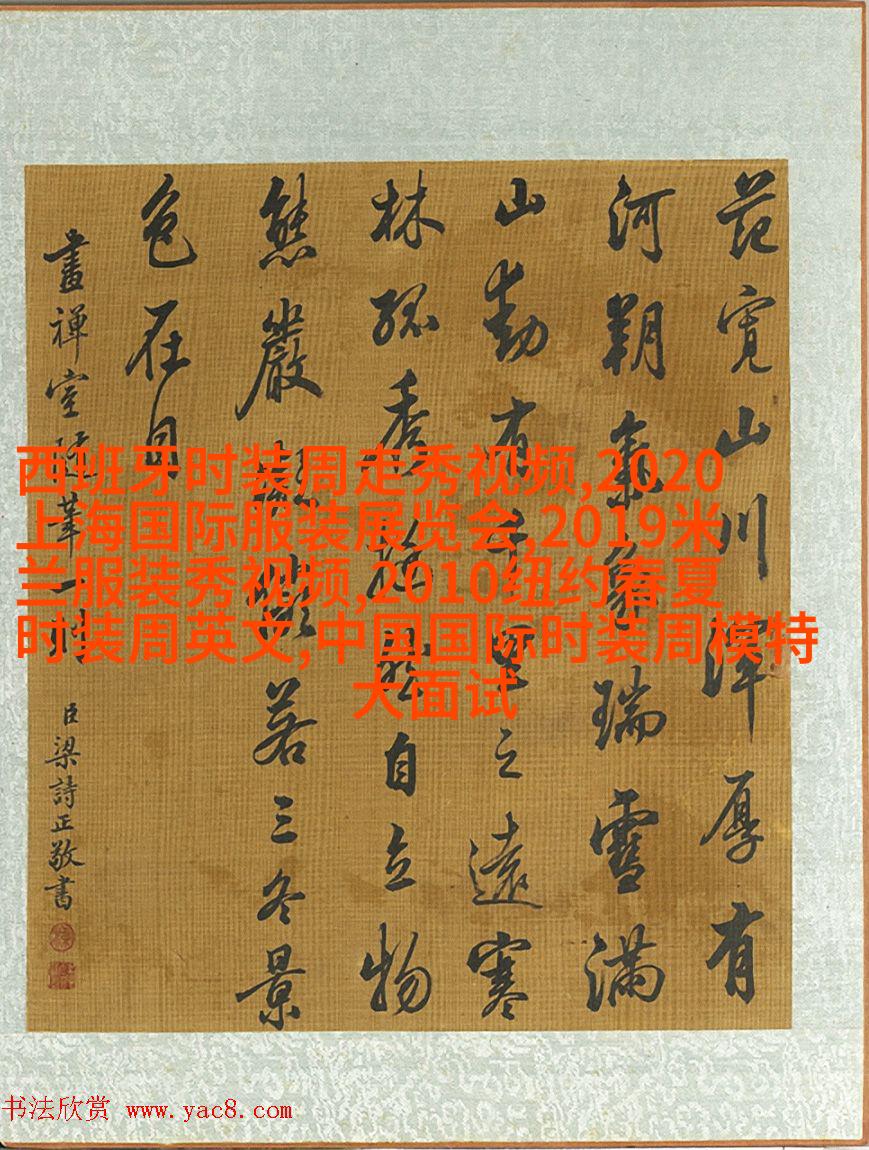 范寬山川渾厚有
河朔氣象瑞雪滿
山動有千里之遠寒
林孤秀挺然自立物
態嚴凝儼若三冬景
色在目
畫禪室隨筆一則
臣梁詩正敬書
西班牙时装周走秀视频,2020
上海国际服装展览会,2019米
兰服装秀视频,2010纽约春夏
时装周英文,中国国际时装周模特
大面试
书法欣赏 www.yac8.com